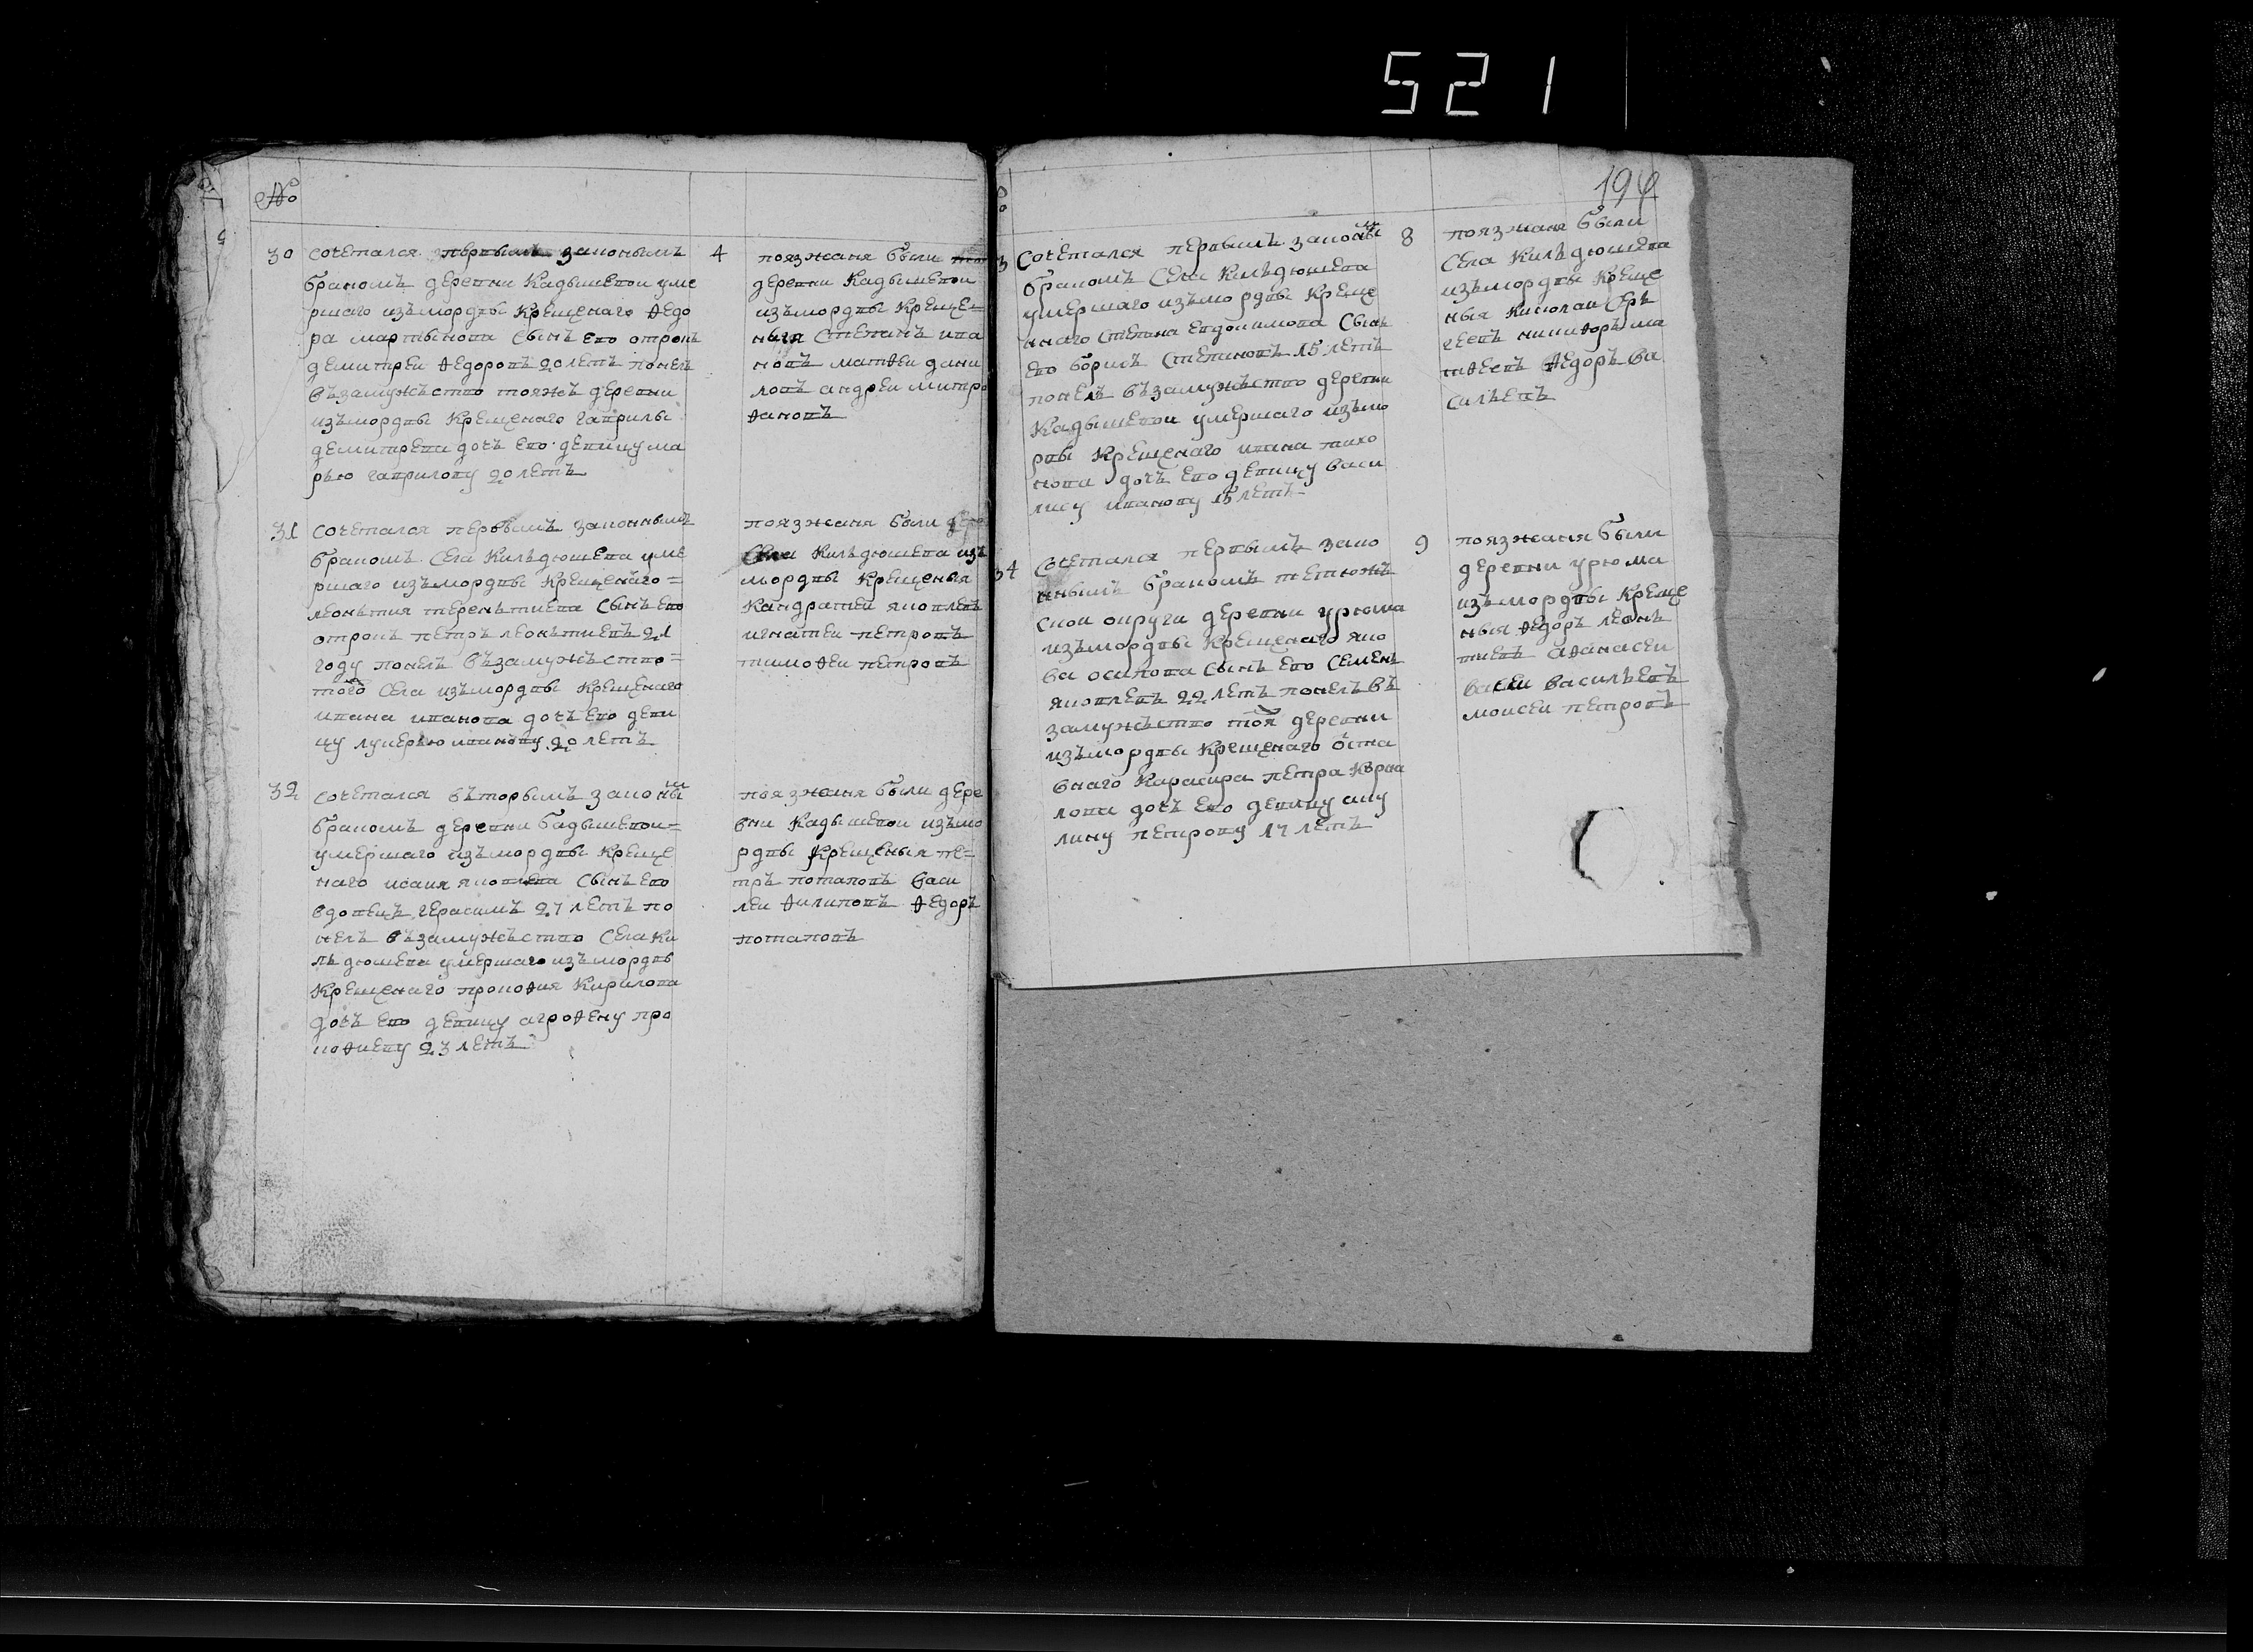 521
194
№
30 сочетался первымъ законымъ
бракомъ деревни Кадышевои уме
ршаго изъмордвы Крещенаго Ѳедо
ра мартынова сынъ ево отрокъ
демитреи Ѳедоровъ 20 летъ понелъ
възамужъство тояжъ деревни
изъмордвы Крещенаго гаврилы
демитрева дочь ево девицу ма
рью гаврилову 20 летъ
4
поязжаня были
деревни Кадышевои
изъмордвы Креще=
ныя Степанъ ива
новъ матвеи дани
ловъ андреи митро
Ѳановъ
31 сочетался первымъ законнымъ
бракомъ Села Кильдюшева уме
ршаго изъмордвы Крещенаго=
леонътия терентиева сынъ ево
отрокъ петръ леонътиевъ 21
году понелъ възамужъство=
того Села изъмордвы Крещенаго
ивана иванова дочь ево деви
цу лукерью иванову 20 летъ
поязжаня были
Села Кильдюшева изъ
мордвы Крещеныя
Кандратеи яковлевъ
игнатеи петровъ
тимоѲеи петровъ
32 сочетался въторымъ законы
бракомъ деревни бадышевои=
умершаго изъмордвы Креще
наго исаия яковлева сынъ ево
вдовецъ герасимъ 27 летъ по
нелъ възамужъство Села Ки
льдюшева умершаго изъмордвы
Крещенаго прокоѲия Кирилова
дочь ево девицу агроѲену про
коѲиеву 23 летъ
поязжаня были дере
вни Кадышевои изъмо
рдвы Крещеныя пе=
тръ потаповъ васи
леи Ѳилиповъ Ѳедоръ
потаповъ
3 Сочетался первымъ закон̾ы
бракомъ Села Кильдюшева
умершаго изъмордвы Креще
ннаго степана евдокимова сынъ
ево борисъ Степановъ 15 летъ
понелъ възамужъство деревни
Кадышевои умершаго изъмо
рдвы Крещенаго ивана тихо
нова дочь ево девицу васи
лису иванову 15 летъ
8
поязжаня были
Села Кильдюшева
изъмордвы Креще
ныя николаи Сер
геевъ никиѲоръ ма
тѲеевъ Ѳедоръ ва
сильевъ
34 Сочетался первымъ зако
ннымъ бракомъ тетюжъ
скои округи деревни урюма
изъмордвы Крещенаго яко
ва осипова сынъ ево Семенъ
яковлевъ 22 летъ понелъ въ
замужъство тоя деревни
изъмордвы Крещенаго отста
внаго Карасира петра
лова дочь ево девицу аку
лину петрову 17 летъ
9
поязжаня были
деревни урюма
изъмордвы Креще
ныя Ѳедоръ леонъ
тиевъ аѲанасеи
васильевъ
моисеи петровъ